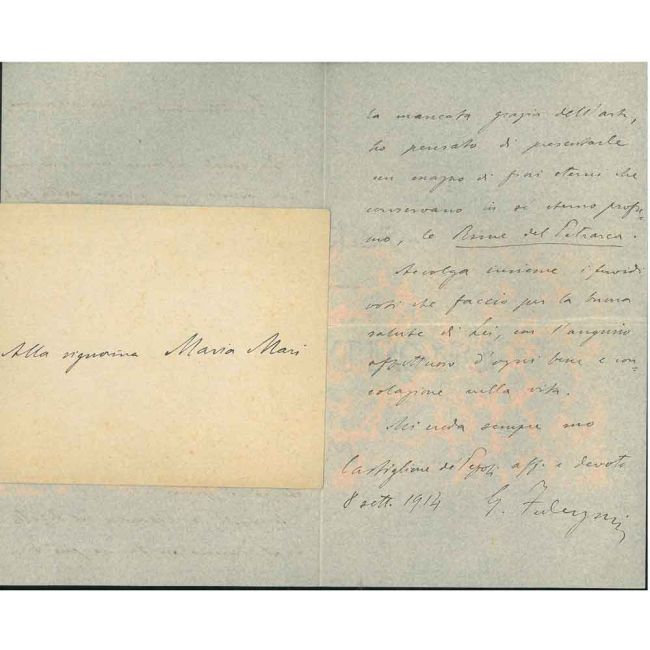 Alla signorina Maria Mari
la mancata grazia dell'arte,
ho pensato di presentarle
un magno di fiori eterni che
conservano in sé eterno profu=
mo, le Rime del Petrarca.
Accolga insieme i fervidi
voti che faccio per la buona
salute di Lei, con l'augurio
affettuoso d'ogni bene e con=
solazione nella vita.
Mi creda sempre suo
Castiglione de' Pepoli aff. e devoto
8 sett. 1914 G.